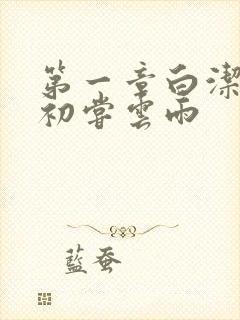 第一章白潔
初嘗雲雨
藍蚕